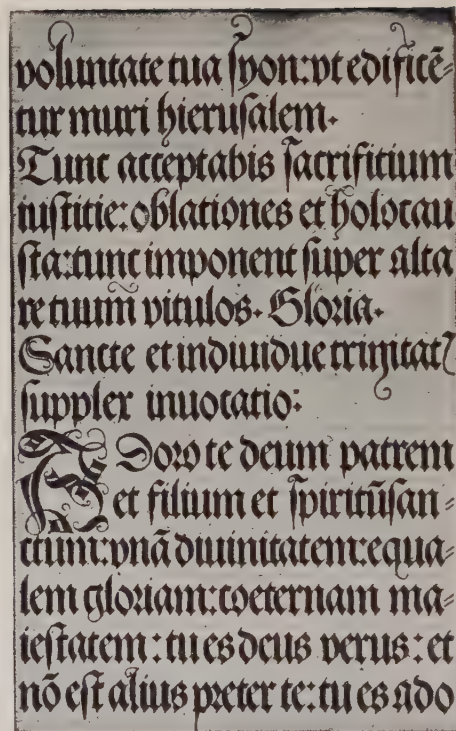 voluntate tua syon: vt edificē-
tur muri hierusalem.
Tunc acceptabis sacrificium
iustitie: oblationes et holocau
sta: tunc imponent super alta
re tuum̄ vitulos. Gloria.
Sancte et indiuidue trinitatꝭ
supplex inuocatio:
ADoro te deum patrem
et filium et spiritūsan-
ctum: vnā diuinitatem: equa-
lem gloriam: coeternam ma-
iestatem: tu es deus verus: et
nō est alius preter te: tu es ado